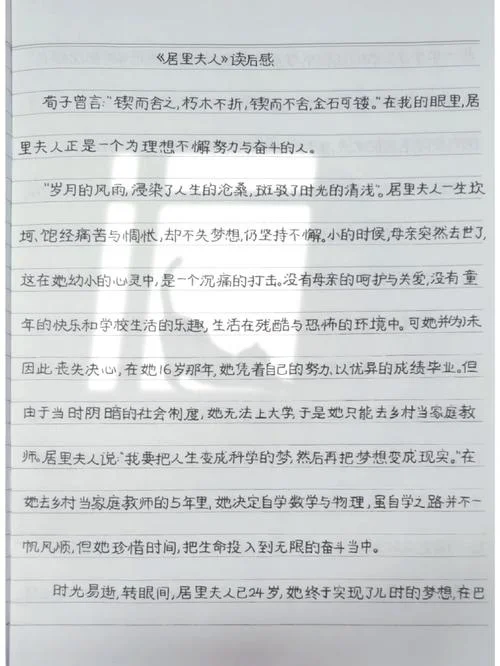 《居里夫人》读后感
荀子曾言:“锲而舍之,朽木不折,锲而不舍,金石可镂。”在我的眼里,居
里夫人正是一个为理想不懈努力与奋斗的人。
“岁月的风雨,浸染了人生的沧桑,斑驳了时光的清浅”。居里夫人一生坎
坷、饱经痛苦与惆怅,却不失梦想,仍坚持不懈。小的时候,母亲突然去世了,
这在她幼小的心灵中,是一个沉痛的打击。没有母亲的呵护与关爱,没有童
年的快乐和学校生活的乐趣,生活在残酷与恐怖的环境中。可她并为未
因此丧失决心,在她16岁那年,她凭着自己的努力、以优异的成绩毕业。但
由于当时阴暗的社会制度,她无法上大学,于是她只能去乡村当家庭教
师。居里夫人说:“我要把人生变成科学的梦,然后再把梦想变成现实。”在
她去乡村当家庭教师的5年里,她决定自学数学与物理,虽自学之路并不一
帆风顺,但她珍惜时间,把生命投入到无限的奋斗当中。
时光易逝,转眼间,居里夫人已24岁,她终于实现了儿时的梦想,在巴